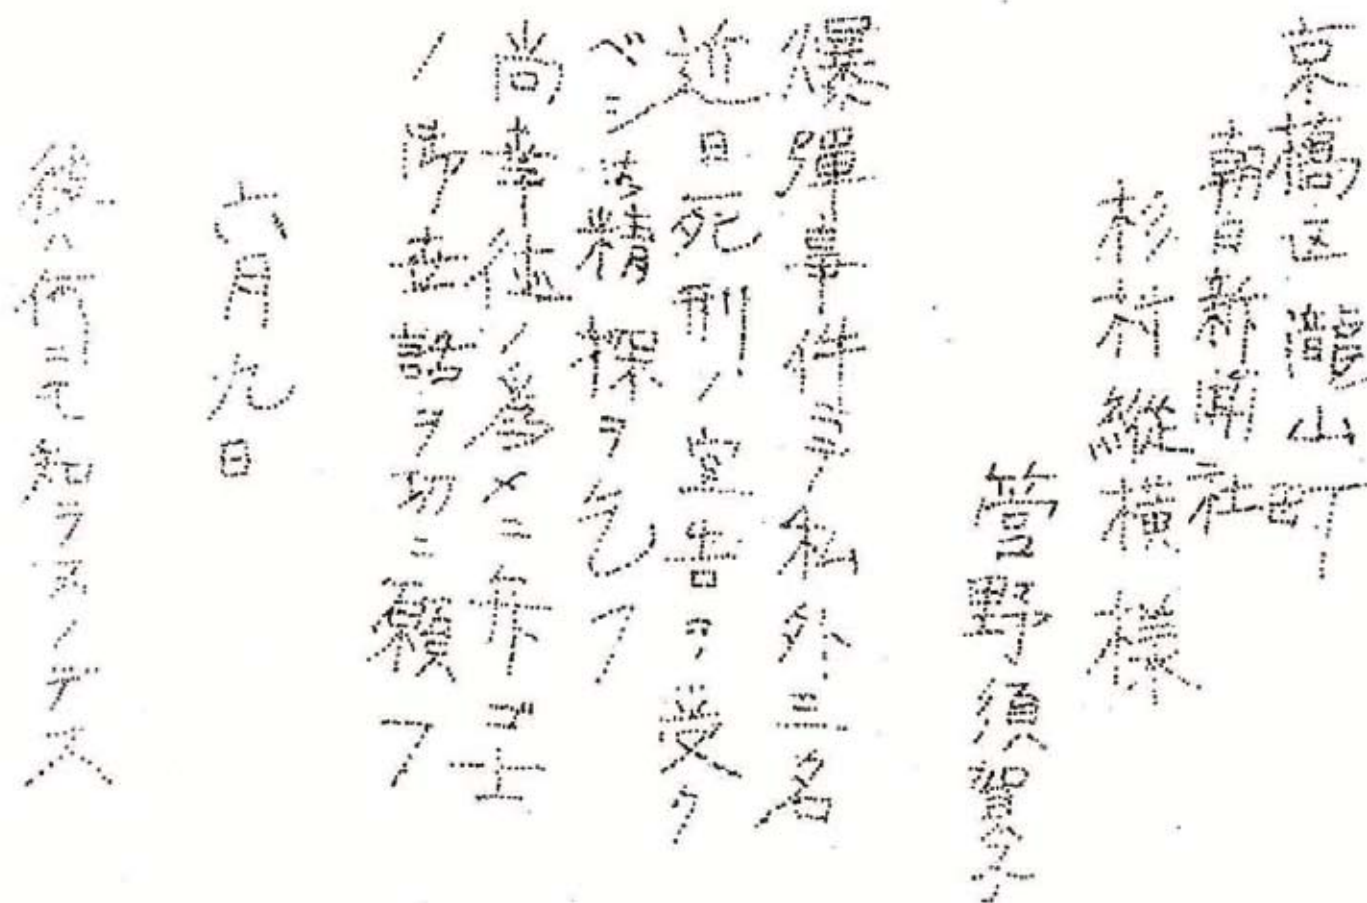 京橋区瀧山町
朝日新聞社
杉村縱横様
管野須賀子
爆彈事件ニテ私外三名
近日死刑ノ宣告ヲ受ク
ベシ御精探ヲ乞フ
尚幸徳ノ爲メニ弁ゴ士
ノ御世話ヲ切ニ願フ
六月九日
彼ハ何ニモ知ラヌノデス